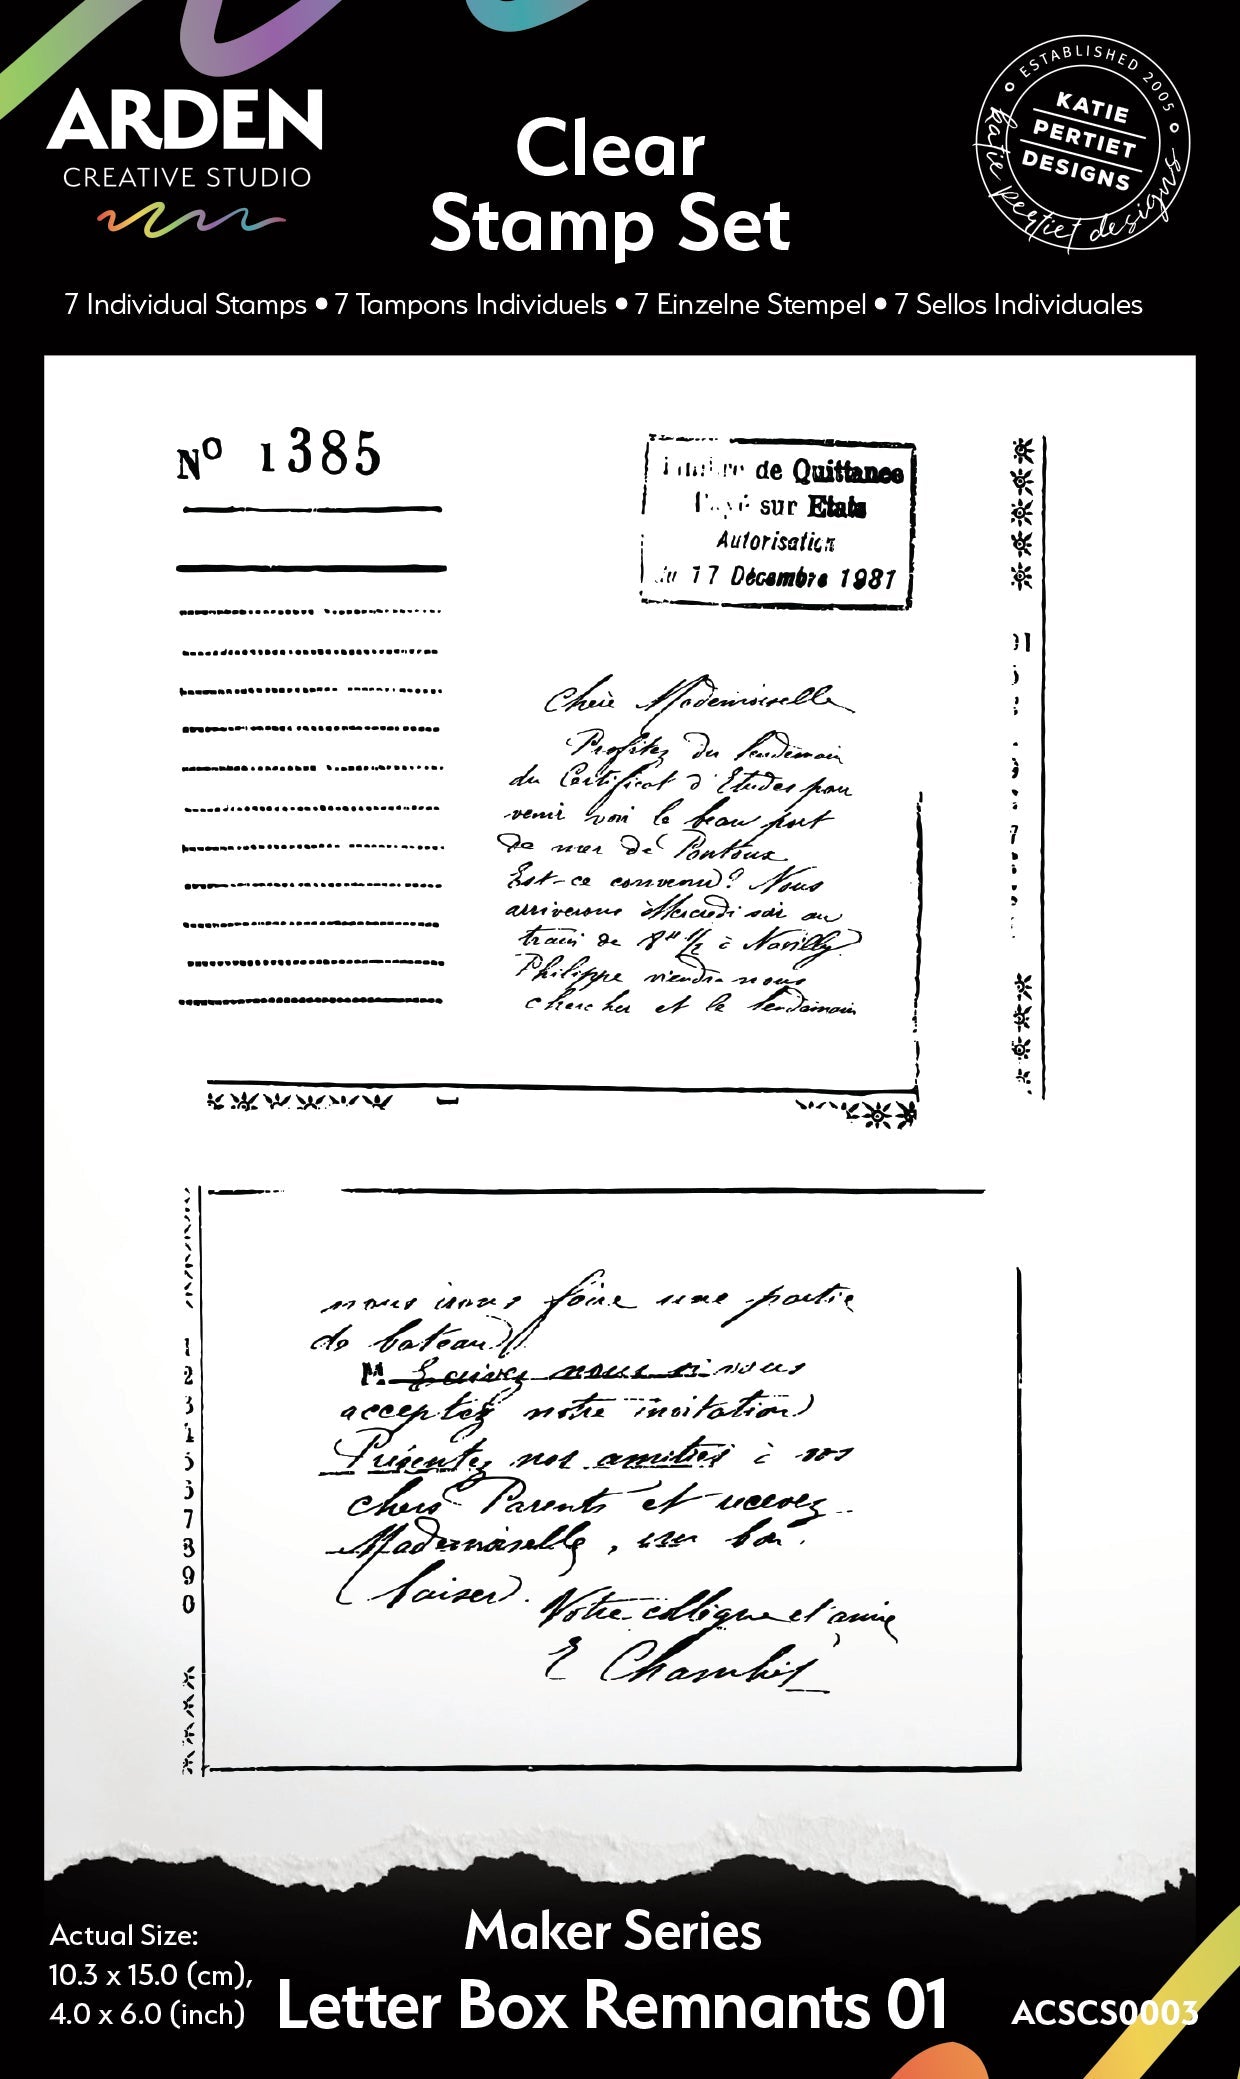 ARDEN
CREATIVE STUDIO
Clear
Stamp Set
ESTABLISHED 2005
KATIE
PERTIET
DESIGNS
katie pertiet designs
7 Individual Stamps • 7 Tampons Individuels • 7 Einzelne Stempel • 7 Sellos Individuales
Nº 1385
de Quittance
sur Etats
Autorisation
du 17 Décembre 1981
Chère Mademoiselle
Profitez du lendemain
du Certificat d'Etudes pour
venir voir le beau port
de mer de Pontoux
Est-ce convenu? Nous
arriverons Mercredi soir au
train de 8H 1/2 à Navilly
Philippe viendra nous
chercher et le lendemain
nous irons faire une partie
de bateau
M. Ecrivez nous si vous
acceptez notre invitation
Présentez nos amitiés à vos
chers Parents et recevez
Mademoiselle, un bon
baiser.
Votre collègue et amie
E Chambis
1
2
3
1
5
5
7
8
9
0
Actual Size:
10.3 x 15.0 (cm),
4.0 x 6.0 (inch)
Maker Series
Letter Box Remnants 01
ACSCS0003